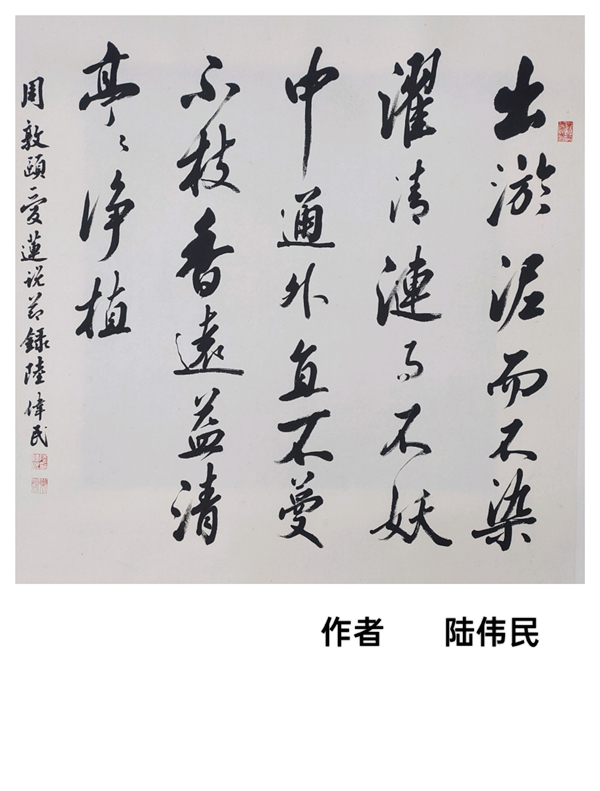 出淤泥而不染
濯清漣而不妖
中通外直不蔓
不枝香遠益清
亭〻净植
周敦頤愛蓮説节録陸偉民
作者 陆伟民